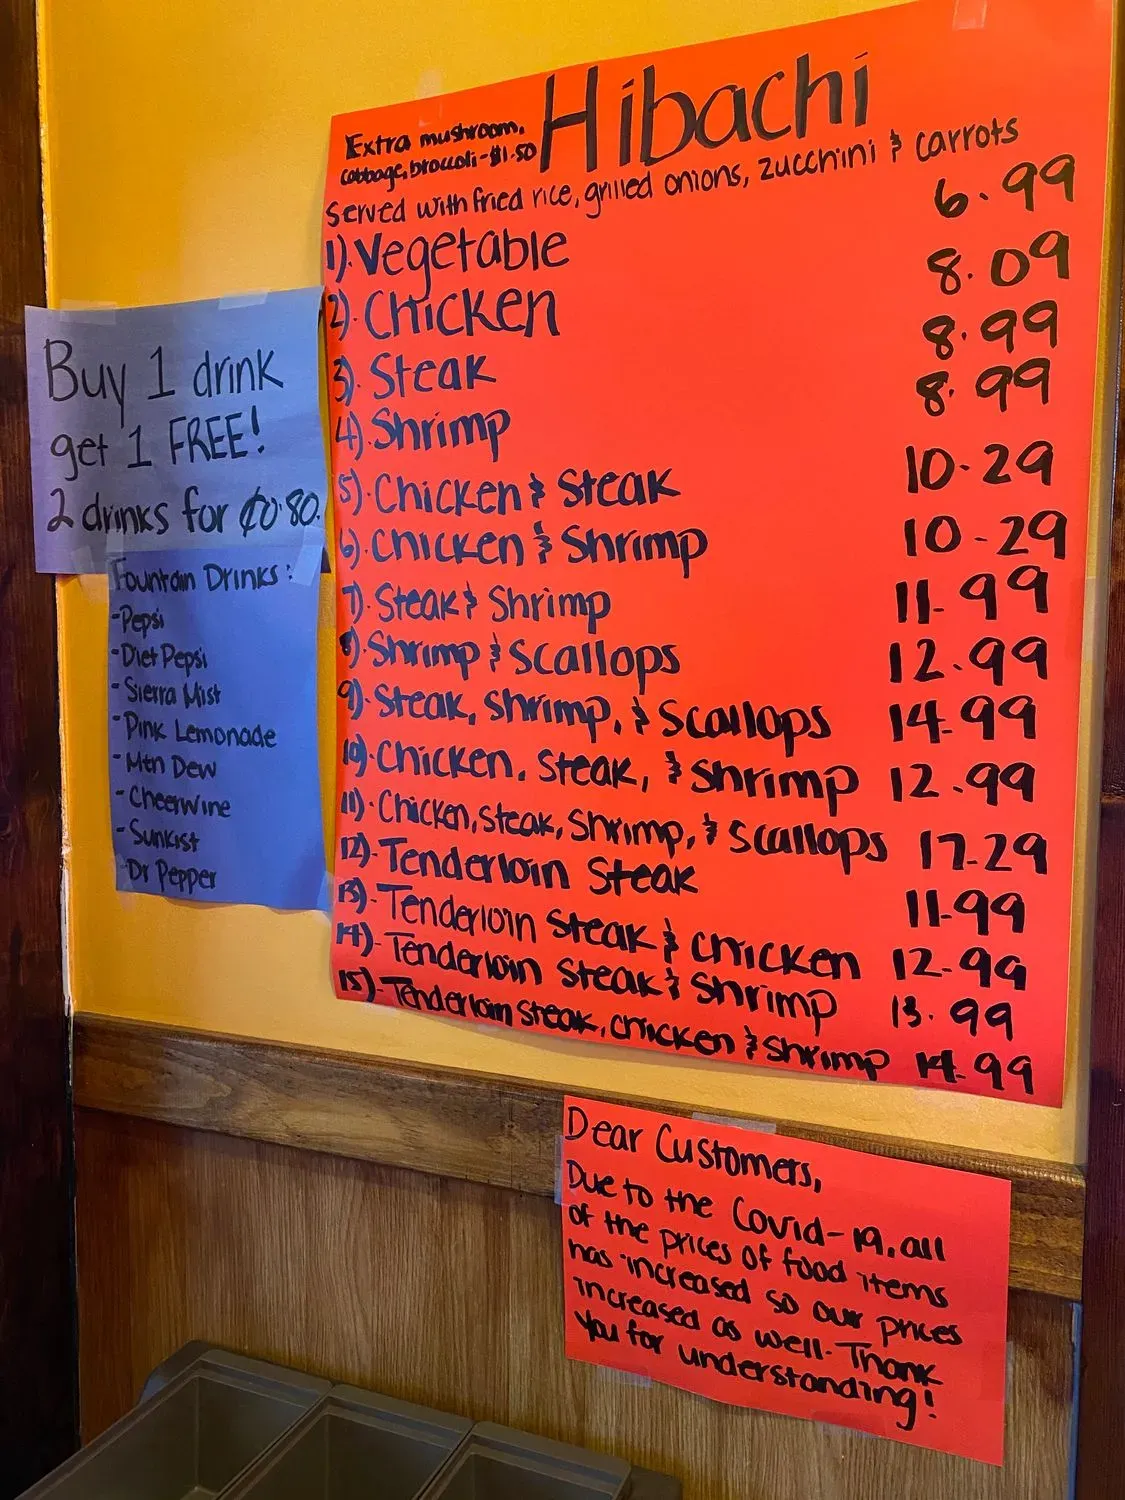 Hibachi
Extra mushroom,
cabbage, broccoli - $1.50
Served with fried rice, grilled onions, zucchini & carrots
1). Vegetable 6.99
2). Chicken 8.09
3). Steak 8.99
4). Shrimp 8.99
5). Chicken & Steak 10.29
6). Chicken & Shrimp 10.29
7). Steak & Shrimp 11.99
8). Shrimp & Scallops 12.99
9). Steak, Shrimp, & Scallops 14.99
10). Chicken, Steak, & Shrimp 12.99
11). Chicken, Steak, Shrimp, & Scallops 17.29
12). Tenderloin Steak 11.99
13). Tenderloin Steak & Chicken 12.99
14). Tenderloin Steak & Shrimp 13.99
15). Tenderloin Steak, Chicken & Shrimp 14.99
Buy 1 drink
get 1 FREE!
2 drinks for $0.80
Fountain Drinks:
- Pepsi
- Diet Pepsi
- Sierra Mist
- Pink Lemonade
- Mtn Dew
- Cheerwine
- Sunkist
- Dr Pepper
Dear Customers,
Due to the Covid-19, all
of the prices of food items
has increased so our prices
increased as well. Thank
you for understanding!